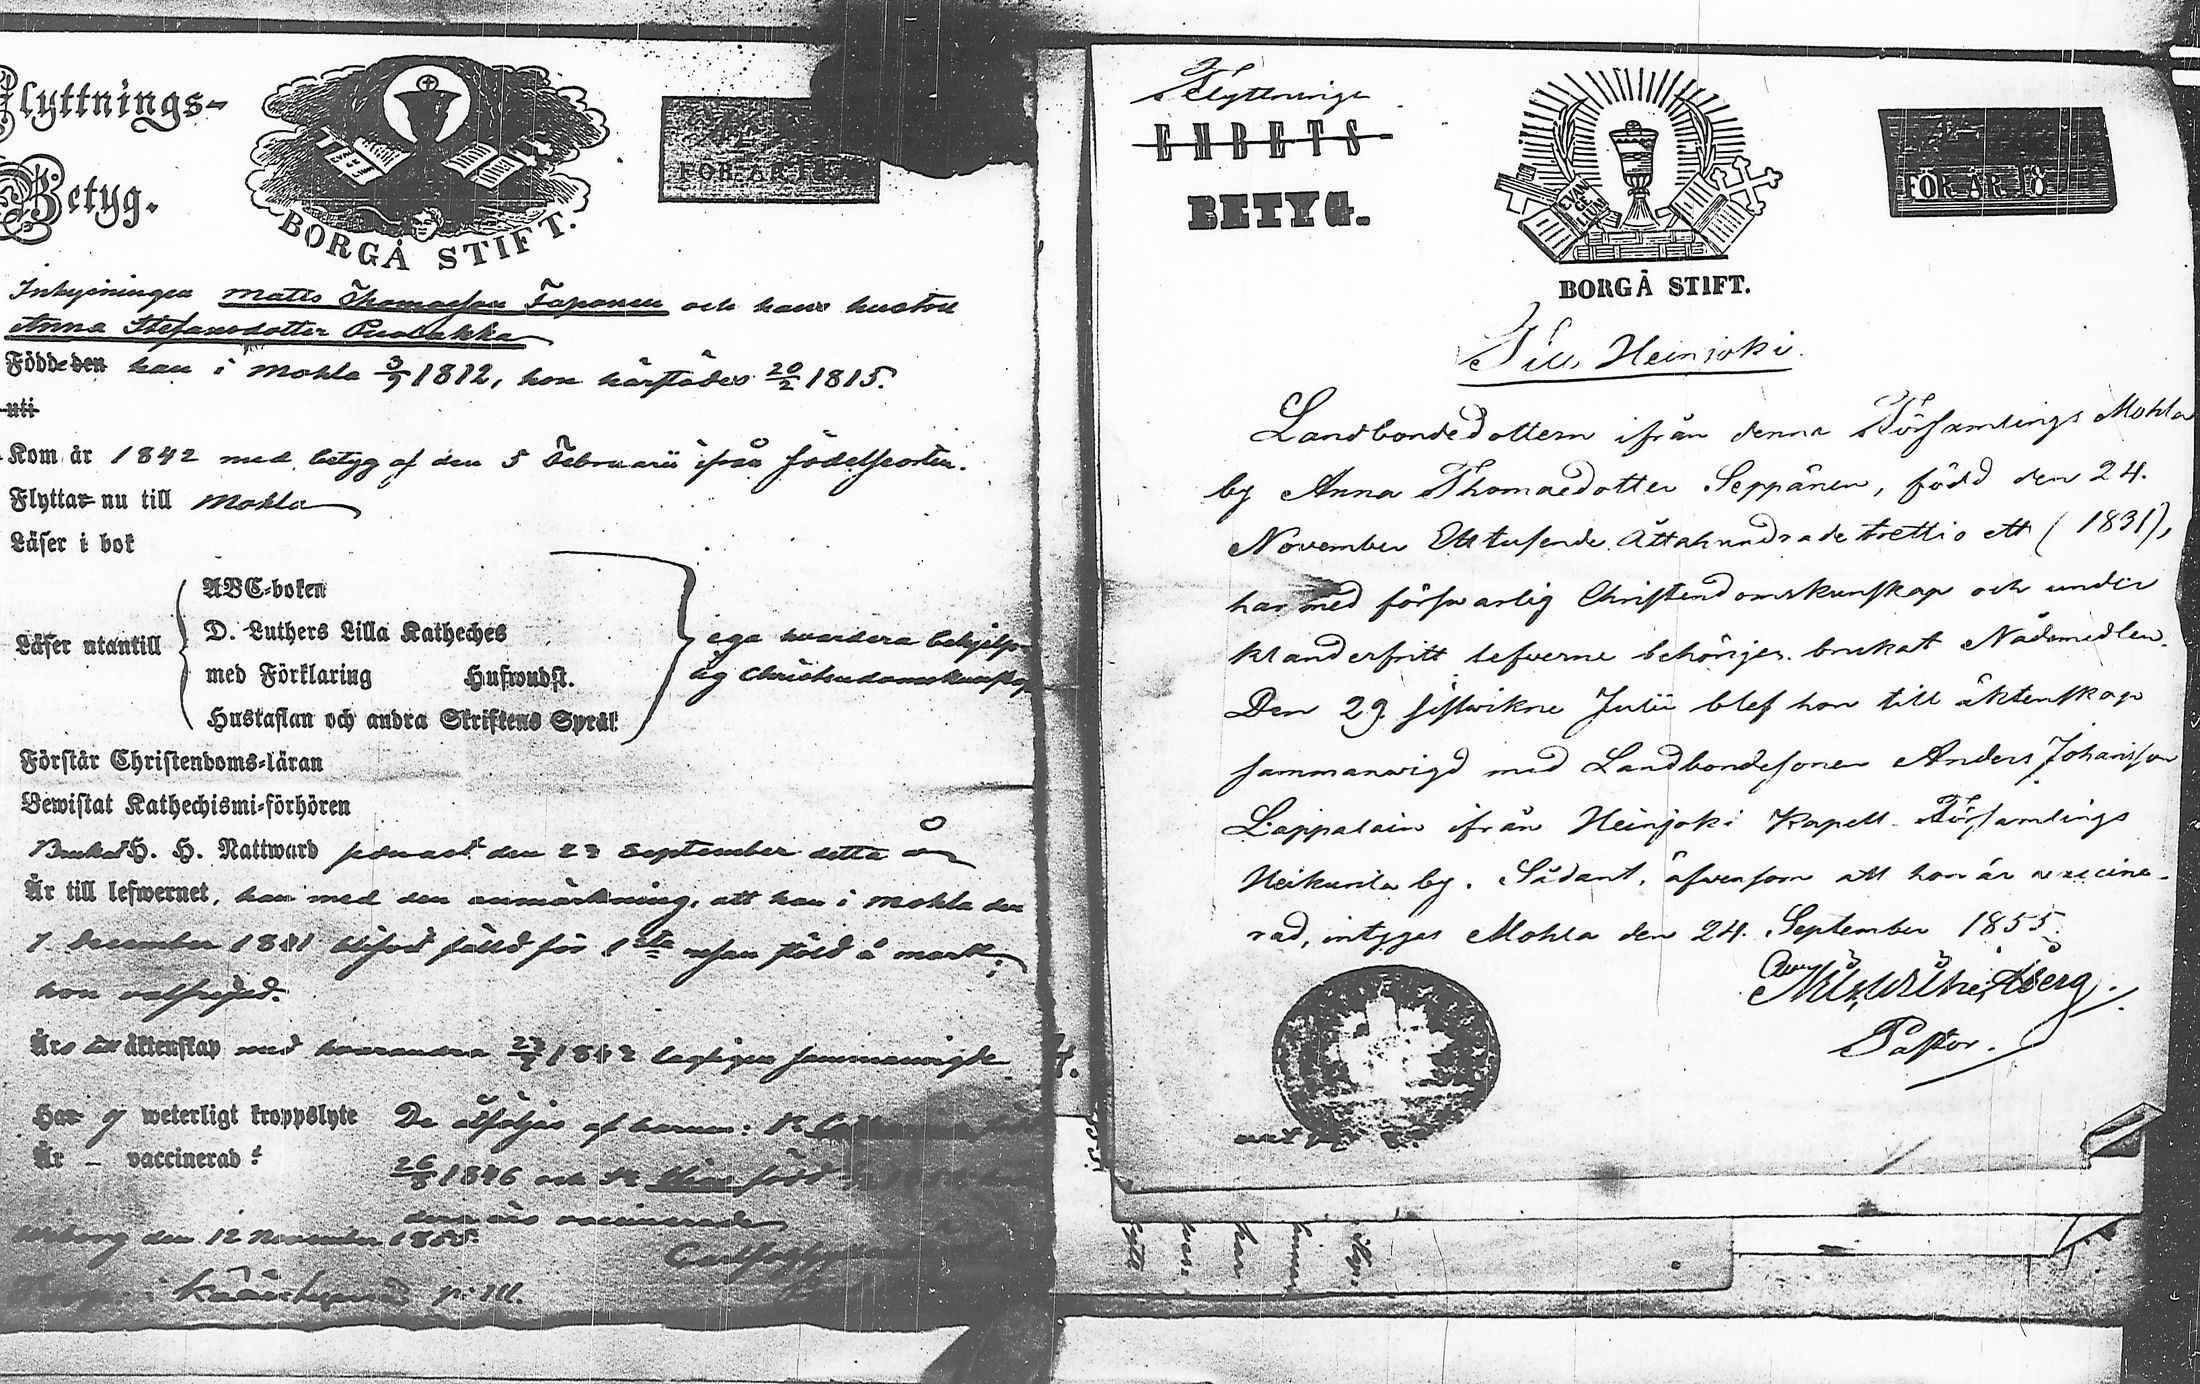 Flyttnings-
Betyg.
BORGÅ STIFT.
FÖR ÅR 18
Inhysingen Matts Thomasson Taponen och hans hustru
Anna Stefansdotter Puolakka
Födde den han i Mohla 3/9 1812, hon härstädes 20/2 1815.
uti
Kom år 1842 med betyg af den 5 Februarii ifrån födelseorten.
Flyttar nu till Mohla
Läser i bok
ABC-boken
D. Luthers Lilla Katheches
Läser utantill
med Förklaring Husandst.
Hustaflan och andra Skriftens Språk
ega hvardera behjelp-
lig Christendomskunskap
Förstår Christendoms-läran
Bewistat Kathechismi-förhören
Brukat H. H. Nattward sednast den 23 September detta år
Är till lefwernet, han med den anmärkning, att han i Mohla den
7 December 1841 blifvit fälld för 1sta resan stöld å mark;
hon välfrejdad.
Äro till äktenskap med hvarandra 1842 lagligen sammanvigde
Har ej weterligt kroppslyte De åtföljas af barnen:
Är – vaccinerad
1846 och född
vaccinerade
Wiborg den 12 November 1855.
BORGÅ STIFT.
Flyttnings
EMBETS
BETYG.
EVAN
GE
LIUM
BORGÅ STIFT.
FÖR ÅR 18
Till Heinjoki.
Landbondedottern ifrån denna Församlings Mohla
by Anna Thomasdotter Seppänen, född den 24.
November Ett tusende Åttahundrade trettio ett (1831),
har med försvarlig Christendomskunskap och under
klanderfritt lefverne behörigen brukat Nådemedlen.
Den 29. sistvikne Julii blef hon till äktenskap
sammanvigd med Landbondesonen Anders Johansson
Lappalain ifrån Heinjoki Kapell-Församlings
Heikurila by. Sådant, äfvensom att hon är vaccine-
rad, intygges Mohla den 24. September 1855.
Pastor.